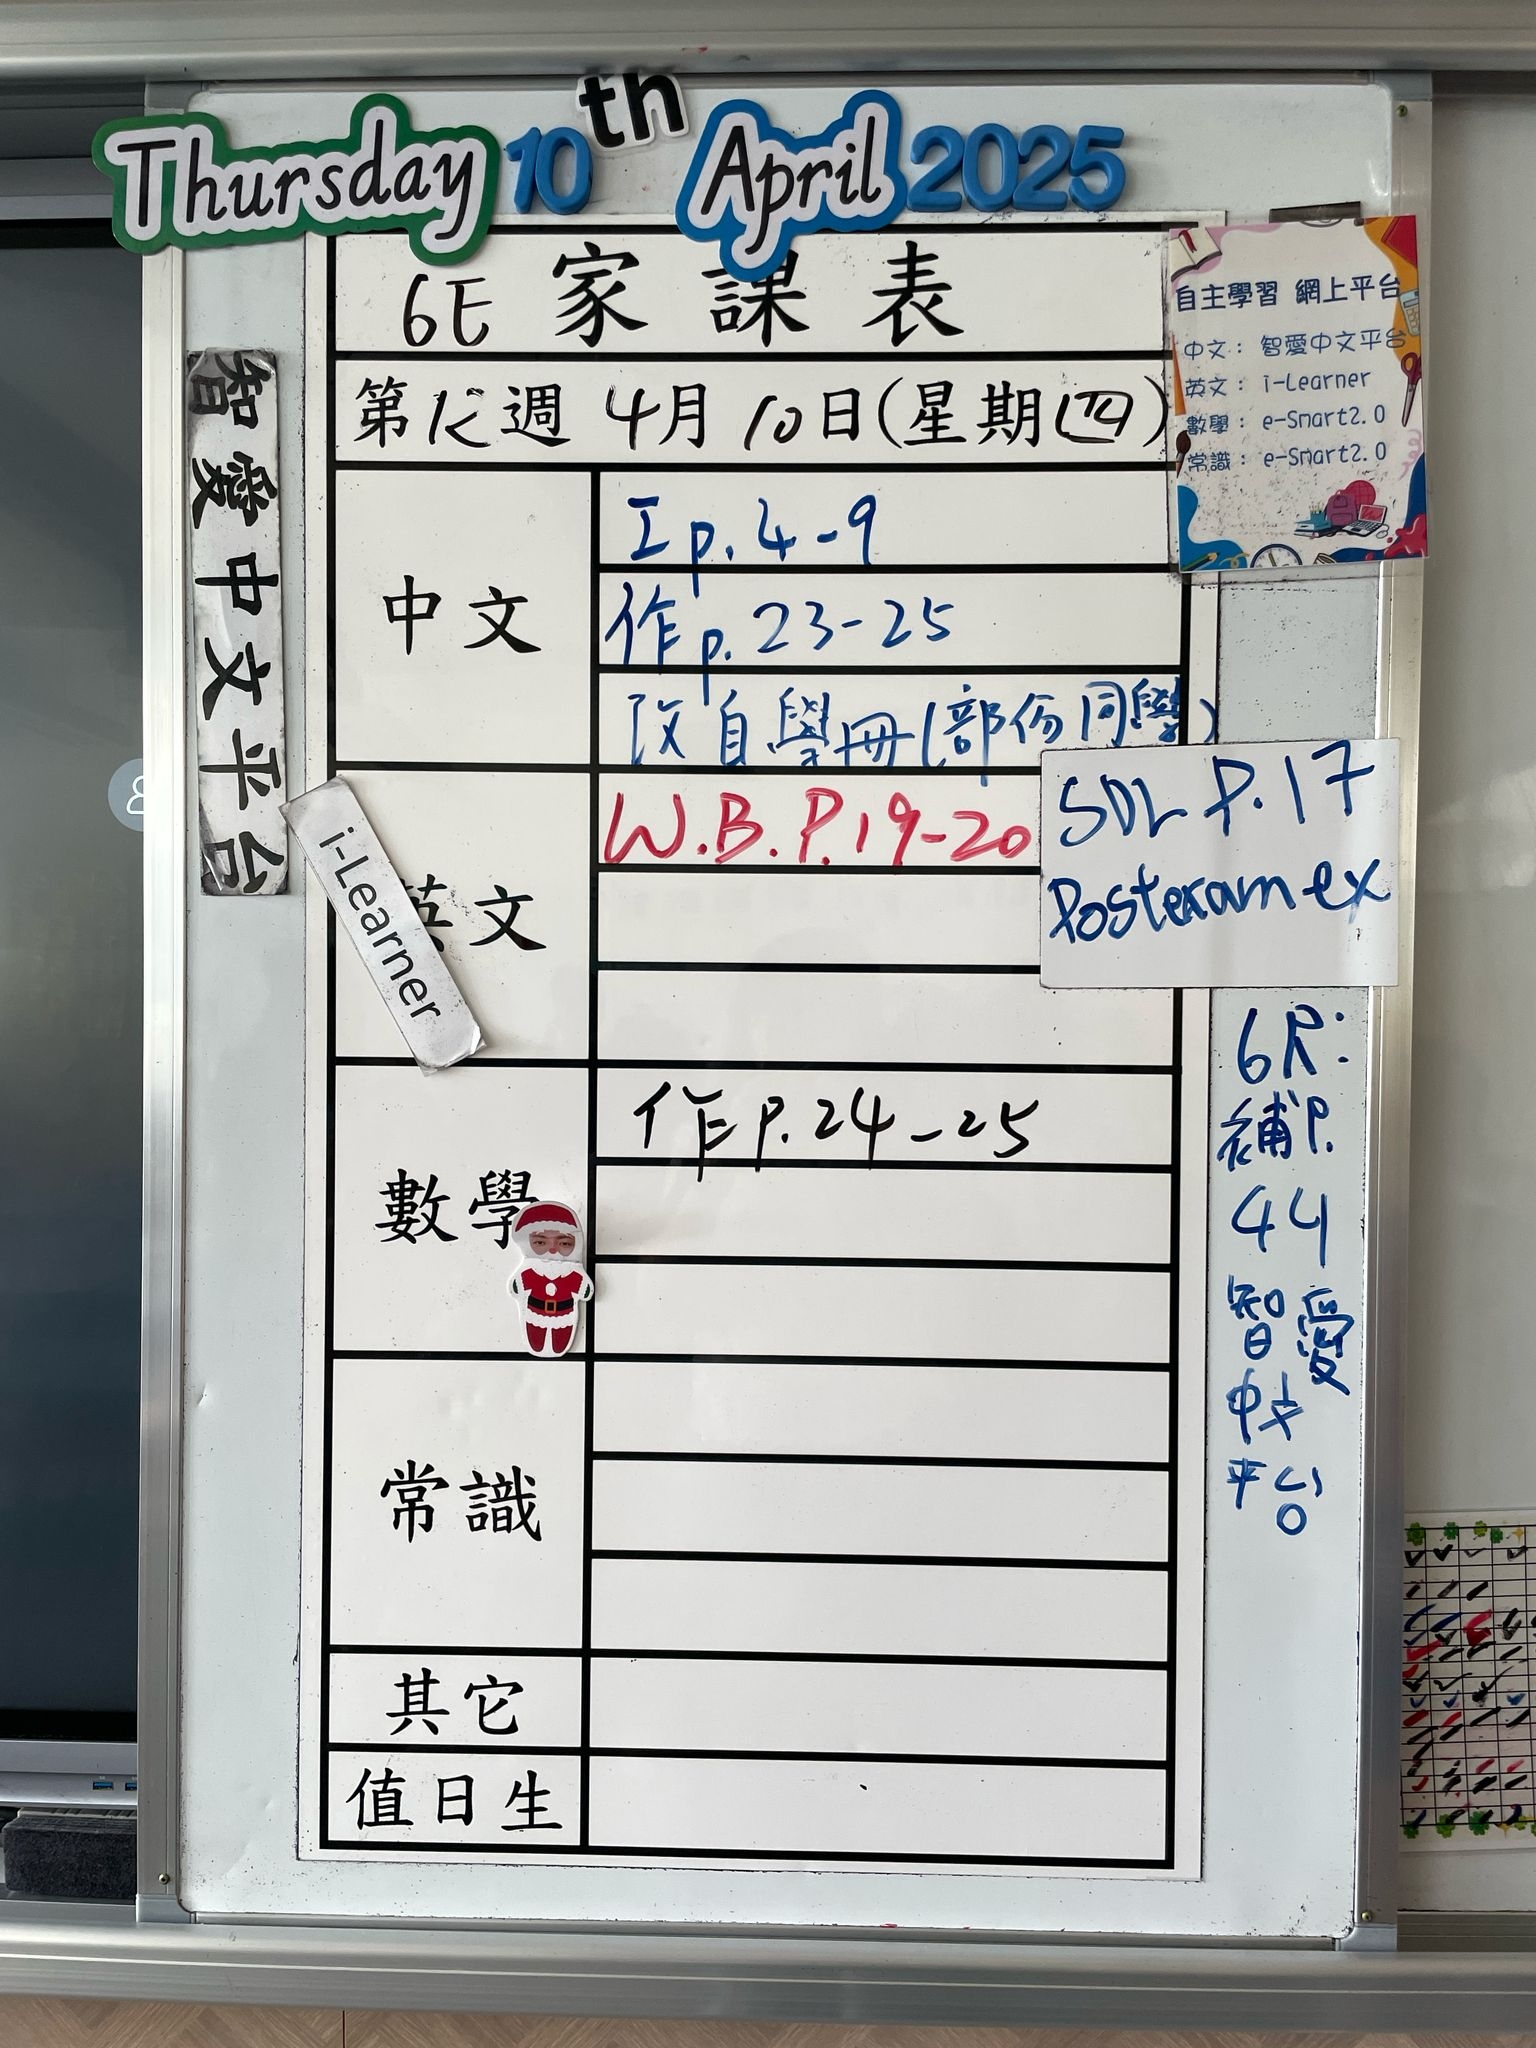 Thursday 10th April 2025
6E 家課表
第12週 4月10日(星期四)
中文
工p.4-9
作p.23-25
改自學冊(部份同學)
英文
W.B.P.19-20
SDL P.17
Posteram ex
數學
作P.24-25
常識
其它
值日生
自主學習 網上平台
中文： 智愛中文平台
英文： i-Learner
數學： e-Smart2.0
常識： e-Smart2.0
智愛中文平台
i-Learner
6R:
補P.
44
智愛
中文
平台